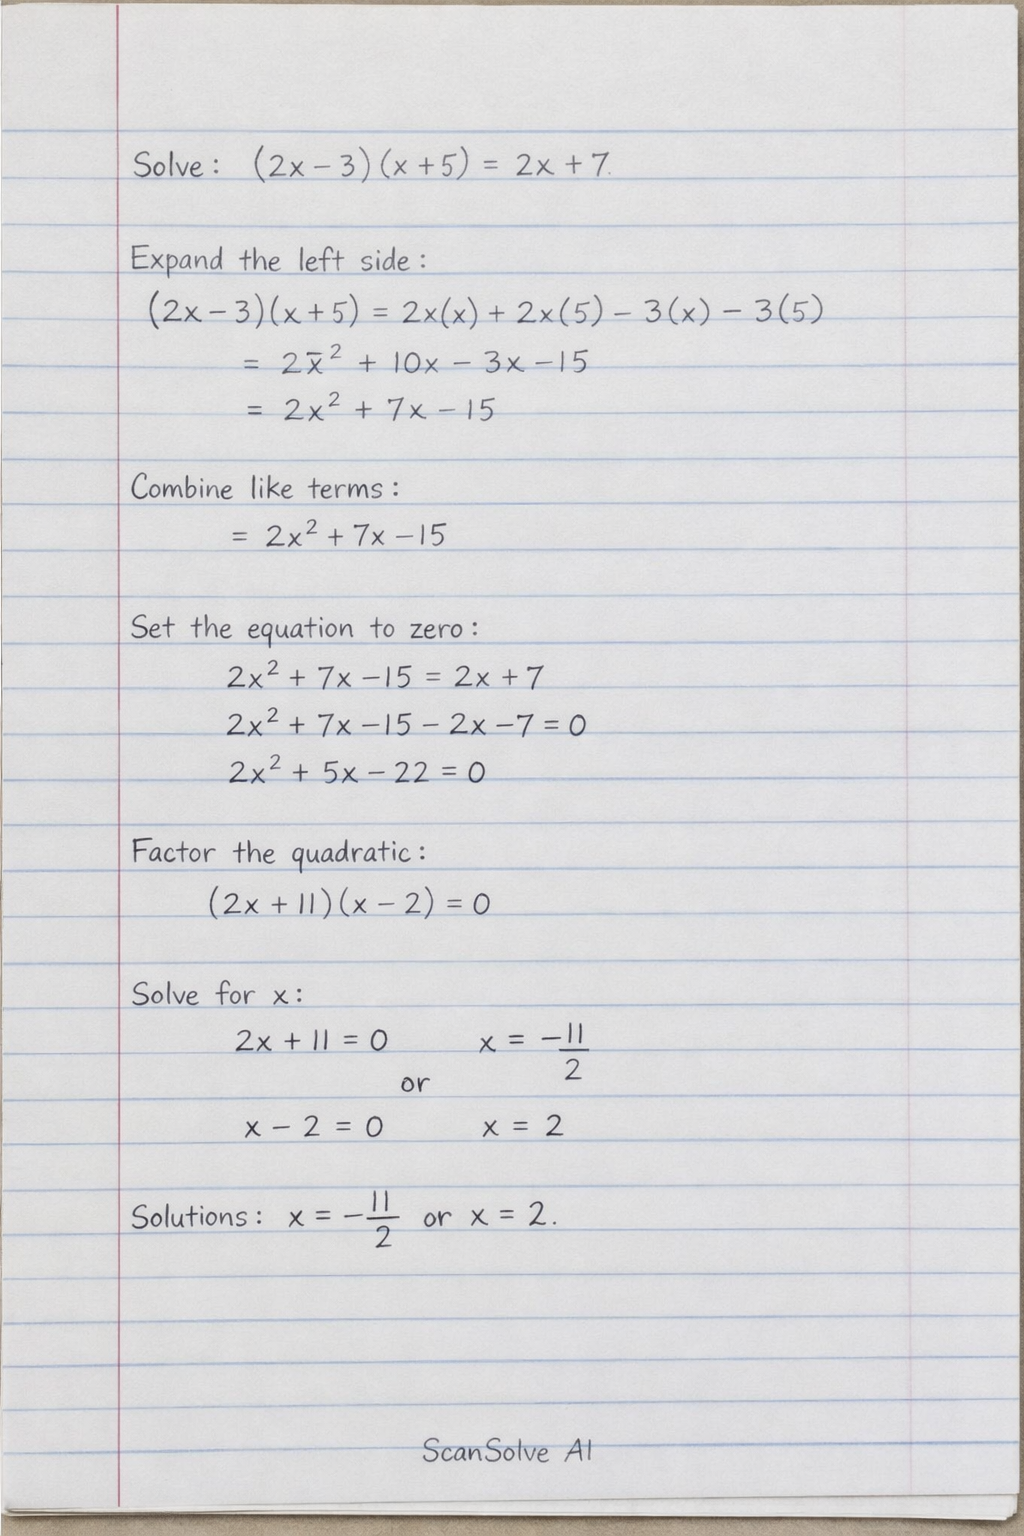 Solve: (2x – 3)(x + 5) = 2x + 7.
Expand the left side:
(2x – 3)(x + 5) = 2x(x) + 2x(5) – 3(x) – 3(5)
= 2x̄² + 10x – 3x – 15
= 2x² + 7x – 15
Combine like terms:
= 2x² + 7x – 15
Set the equation to zero:
2x² + 7x – 15 = 2x + 7
2x² + 7x – 15 – 2x – 7 = 0
2x² + 5x – 22 = 0
Factor the quadratic:
(2x + 11)(x – 2) = 0
Solve for x:
2x + 11 = 0 x = –11/2
or
x – 2 = 0 x = 2
Solutions: x = –11/2 or x = 2.
ScanSolve AI